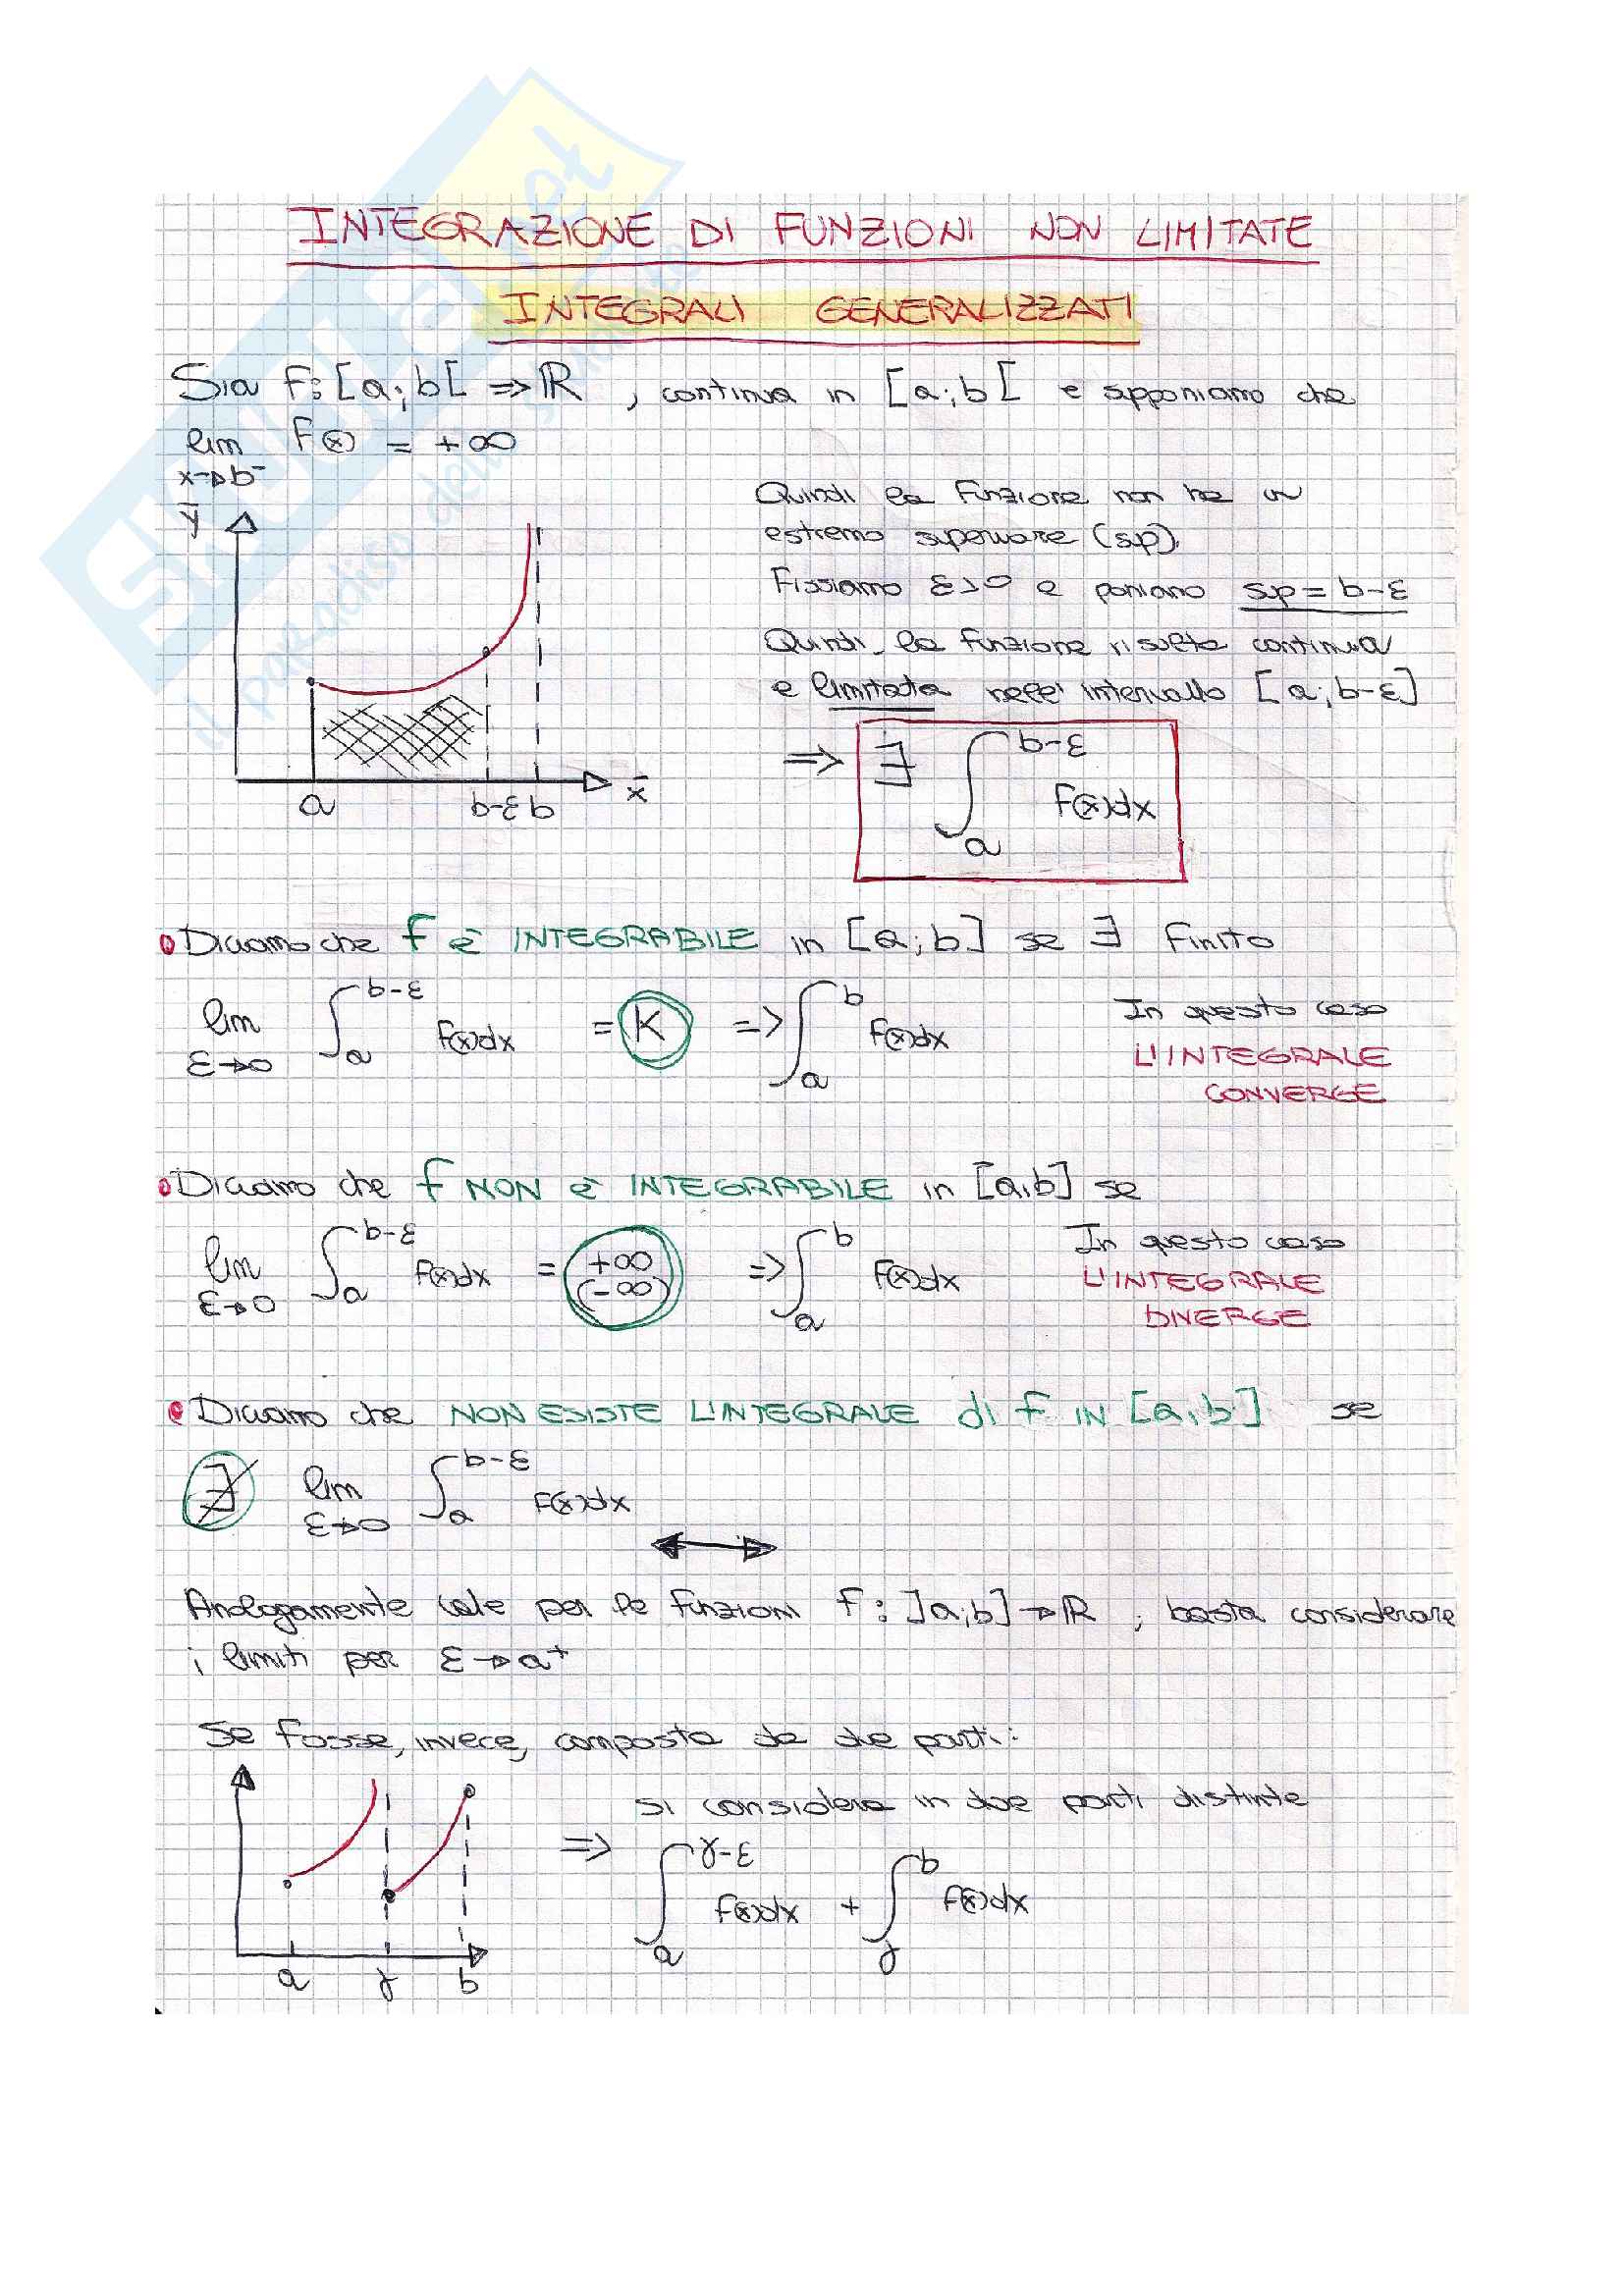 INTEGRAZIONE DI FUNZIONI NON LIMITATE
INTEGRALI GENERALIZZATI
Sia f: [a; b[ => ℝ , continua in [a; b[ e supponiamo che
lim f(x) = +∞
x→b⁻
Quindi la funzione non ha un
estremo superiore (sup).
Fissiamo ε>0 e poniamo sup = b-ε
Quindi la funzione risulta continua
e limitata nell'intervallo [a; b-ε]
y
a b-ε b x
=> ∃ ∫ₐ^(b-ε) f(x)dx
• Diciamo che f è INTEGRABILE in [a; b] se ∃ finito
lim ε→0 ∫ₐ^(b-ε) f(x)dx = K => ∫ₐ^b f(x)dx
In questo caso
L'INTEGRALE
CONVERGE
• Diciamo che f NON è INTEGRABILE in [a, b] se
lim ε→0 ∫ₐ^(b-ε) f(x)dx = +∞ (-∞) => ∫ₐ^b f(x)dx
In questo caso
L'INTEGRALE
DIVERGE
• Diciamo che NON ESISTE L'INTEGRALE di f IN [a, b] se
∄ lim ε→0 ∫ₐ^(b-ε) f(x)dx
Analogamente vale per le funzioni f: ]a; b] → ℝ , basta considerare
i limiti per ε→a⁺
Se fosse, invece, composta da due parti:
si considera in due parti distinte
=> ∫ₐ^(γ-ε) f(x)dx + ∫_γ^b f(x)dx
a γ b
SKUOLA.net
il paradiso dello studente